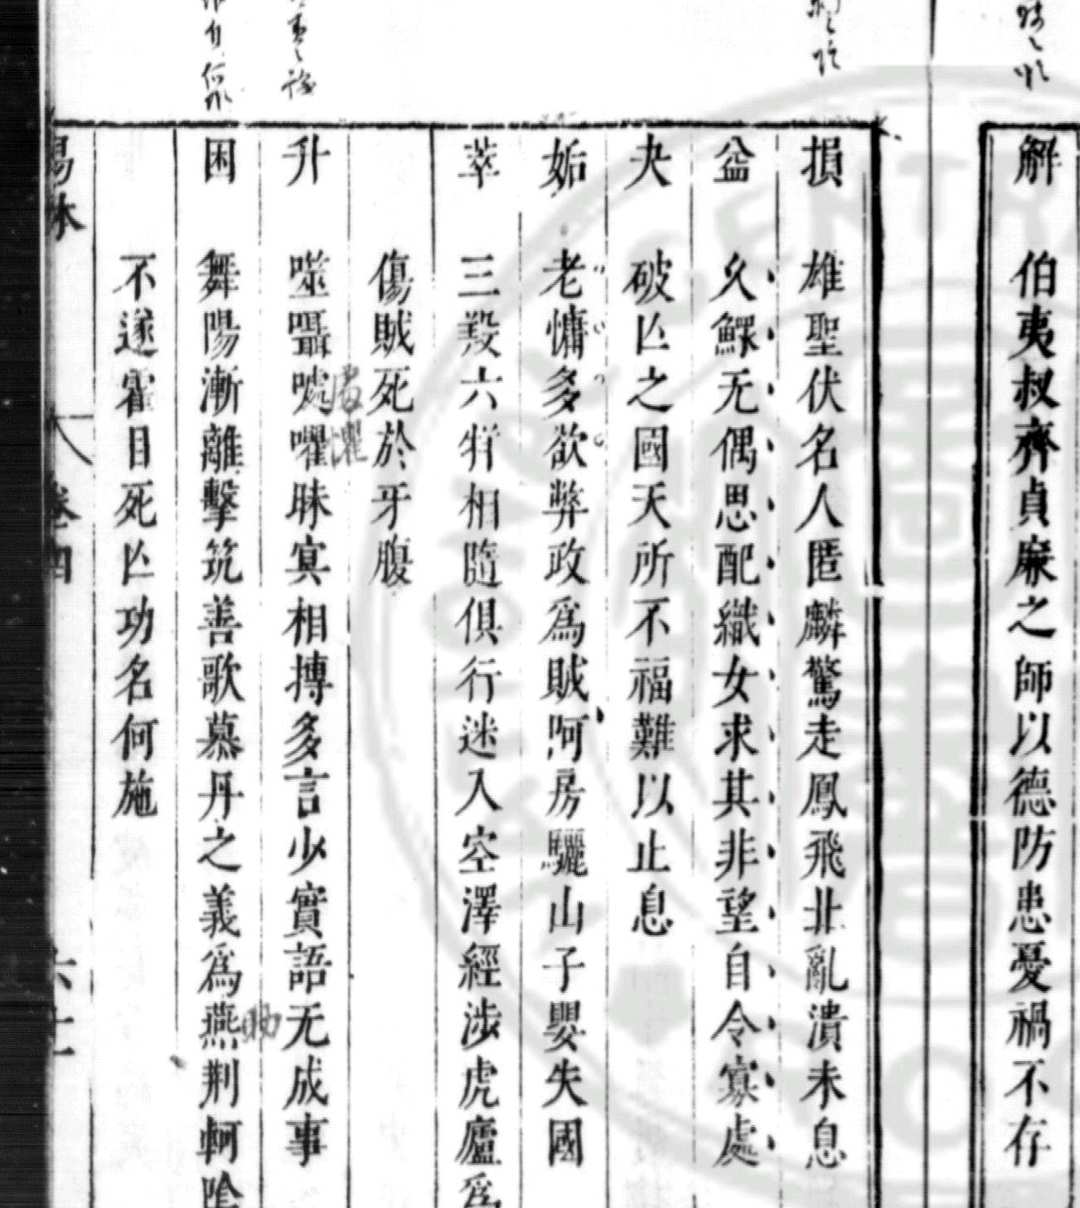 解 伯夷叔齊貞廉之師以德防患憂禍不存
損 雄聖伏名人匿麟驚走鳳飛北亂潰未息
益 久鰥无偶思配織女求其非望自令寡處
夬 破亾之國天所不福難以止息
姤 老慵多欲弊政爲賊阿房驪山子嬰失國
萃 三羖六牂相隨俱行迷入空澤經涉虎廬爲
傷賊死於牙腹
升 噬囁嚏嚾昧冥相摶多言少實語无成事
困 舞陽漸離擊筑善歌慕丹之義爲燕荆軻陰
不遂霍目死亾功名何施
易林 卷四